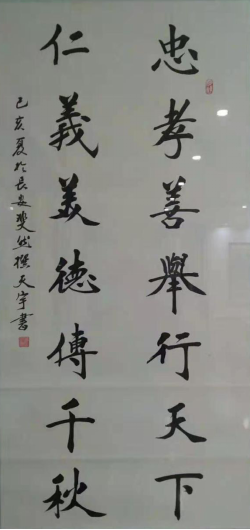 忠孝善舉行天下
仁義美德傳千秋
己亥夏於長安斐然撰天宇書